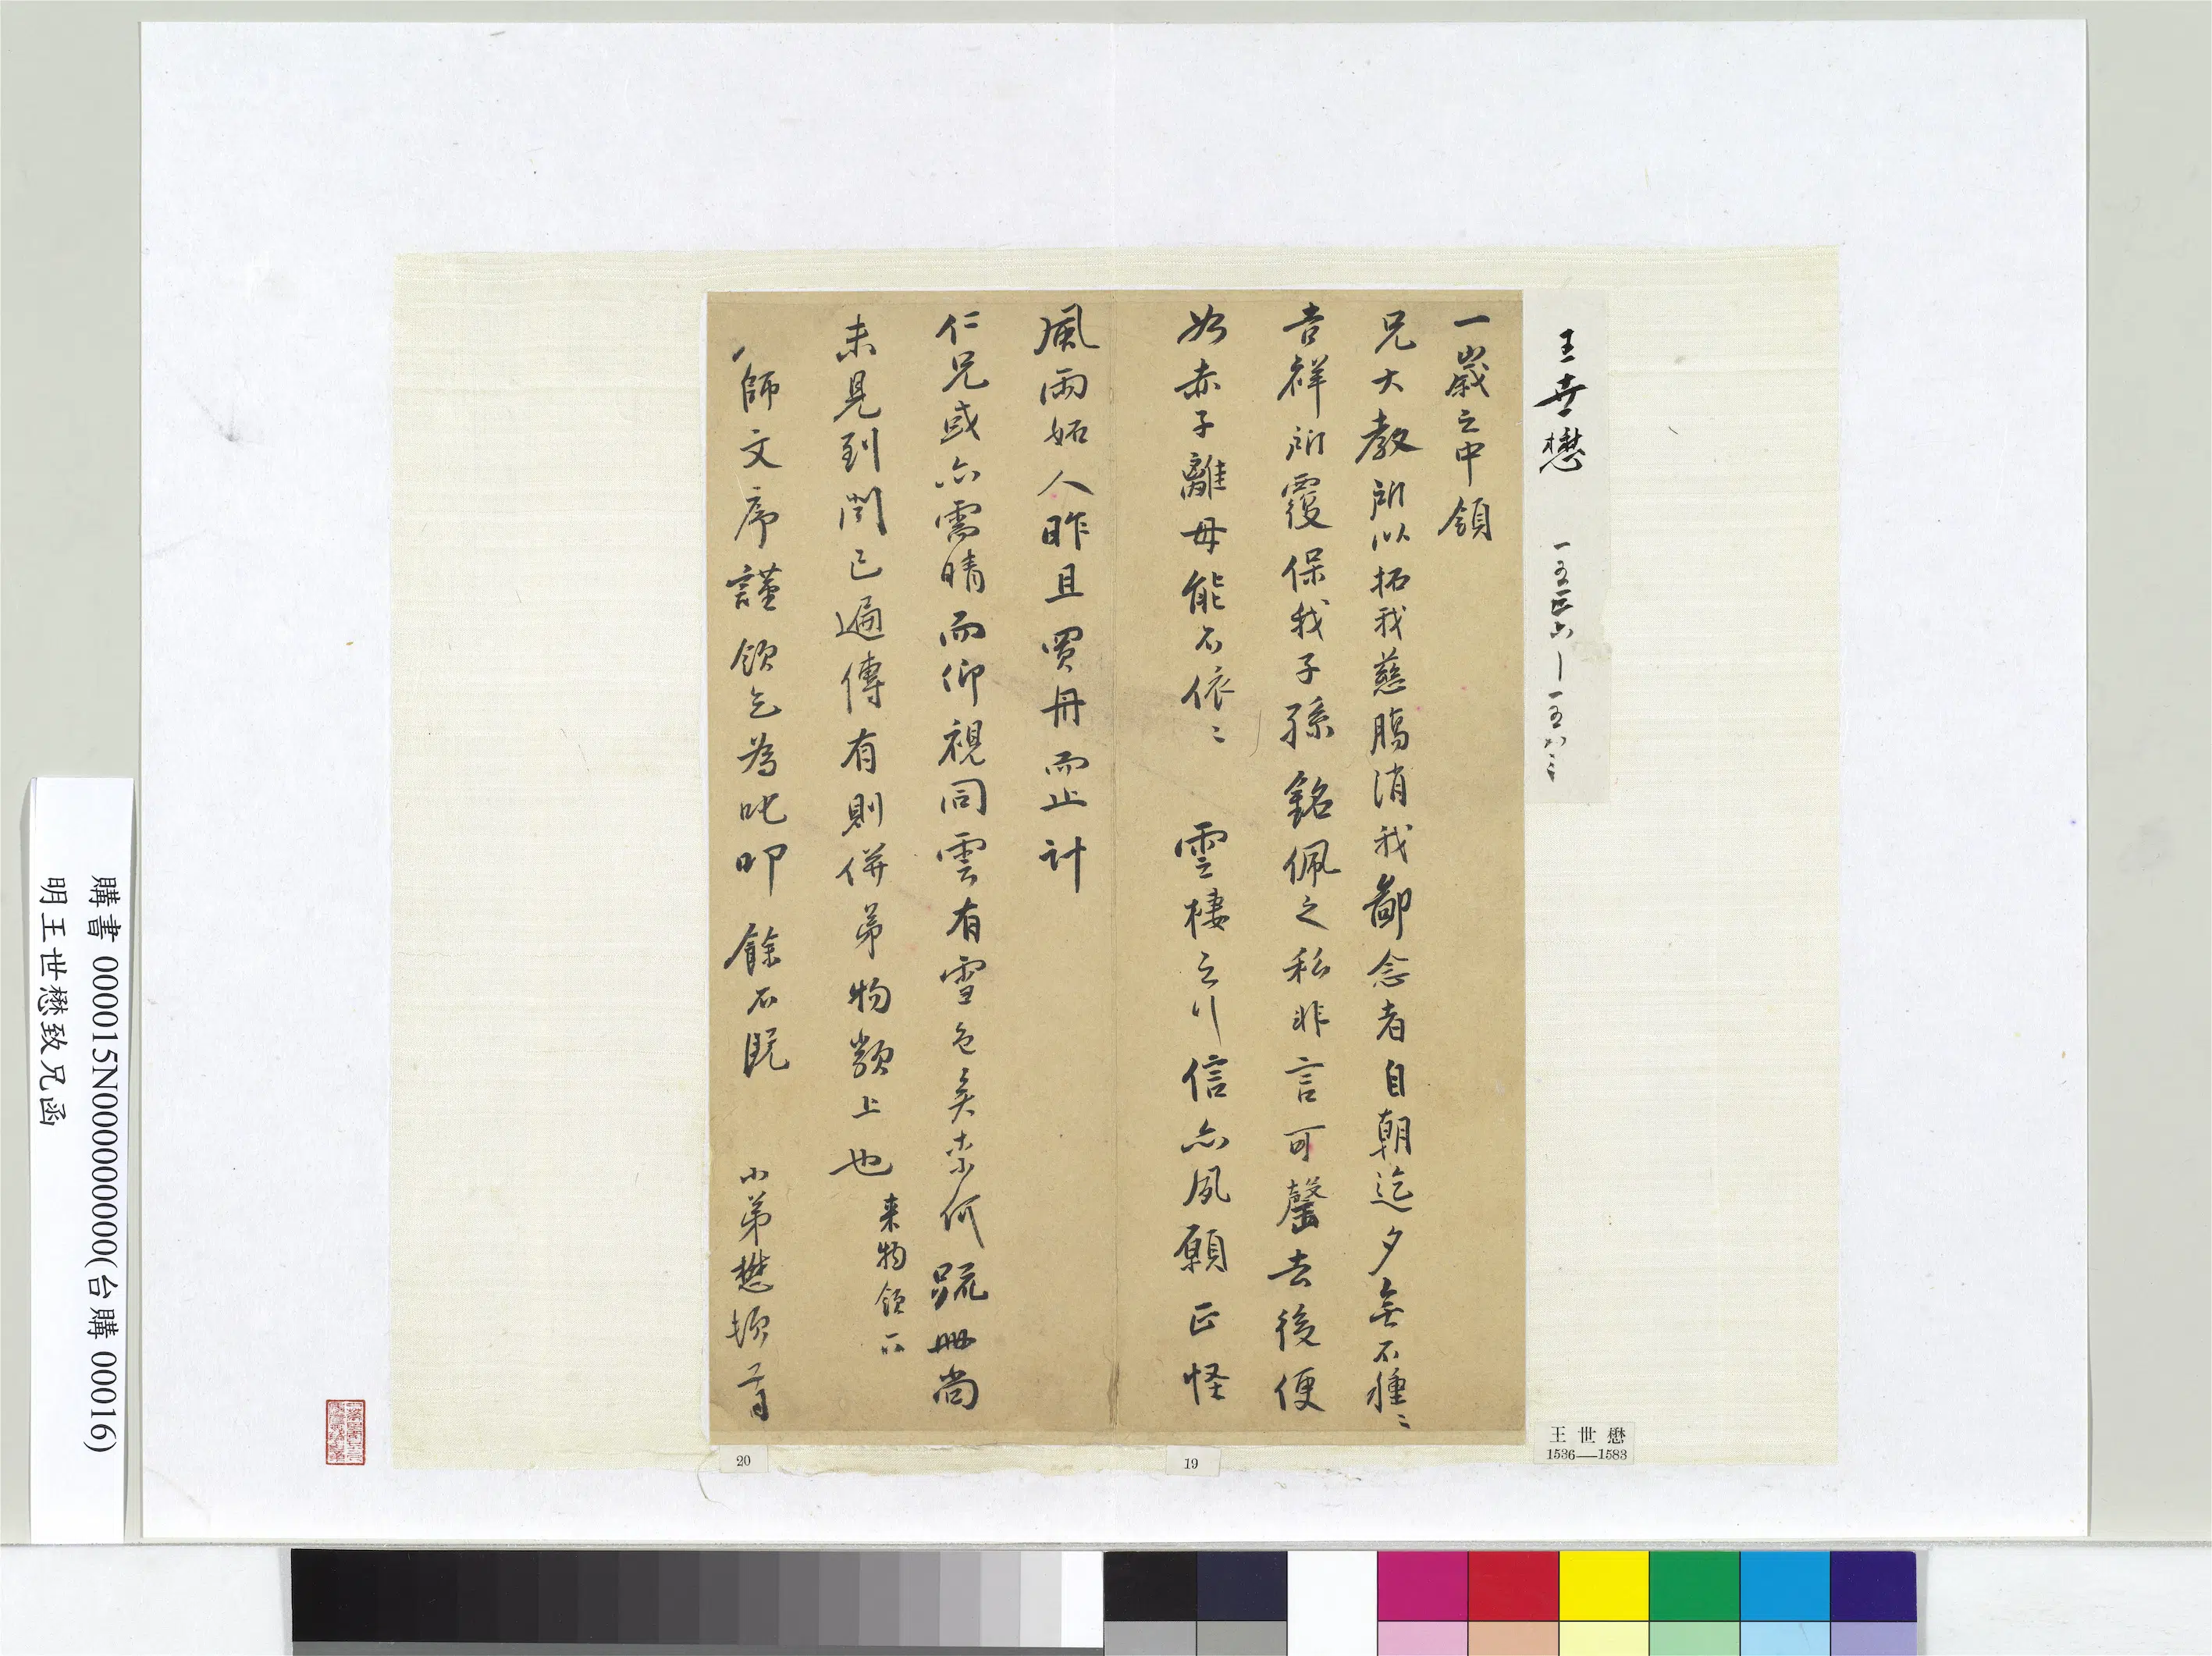 王世懋 一五三六—一五八三
一歲之中領
兄大教所以拓我慈腸消我鄙念者自朝迄夕無不種〻
吉祥所覆保我子孫銘佩之私非言可罄去後便
如赤子離母能不依〻 雲棲之行信亦夙願正怪
風雨妬人昨且買舟而止計
仁兄或亦需晴而仰視同雲有雪色矣柰何疏冊尚
未見到聞已遍傳有則併弟物類上也
来物領一
師文序謹領乞為叱叩 餘不既 小弟懋頓首
王世懋
1536—1583
19
20
購書 000015N000000000(台購 00016)
明王世懋致兄函